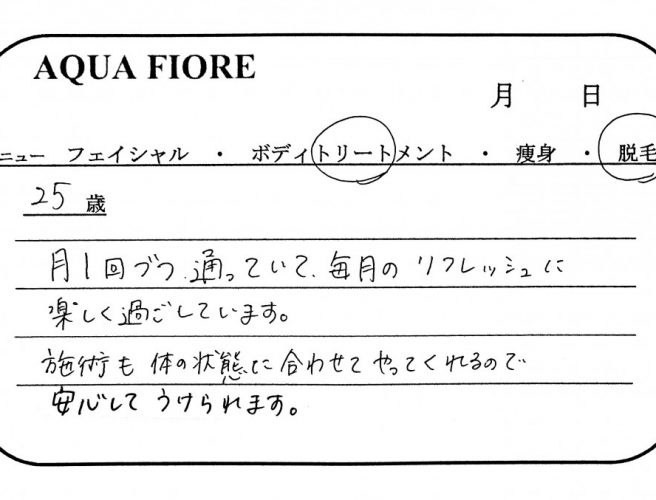 AQUA FIORE
月 日
ニュー フェイシャル ・ ボディトリートメント ・ 痩身 ・ 脱毛
25 歳
月1回づつ通っていて、毎月のリフレッシュに
楽しく過ごしています。
施術も体の状態に合わせてやってくれるので
安心してうけられます。